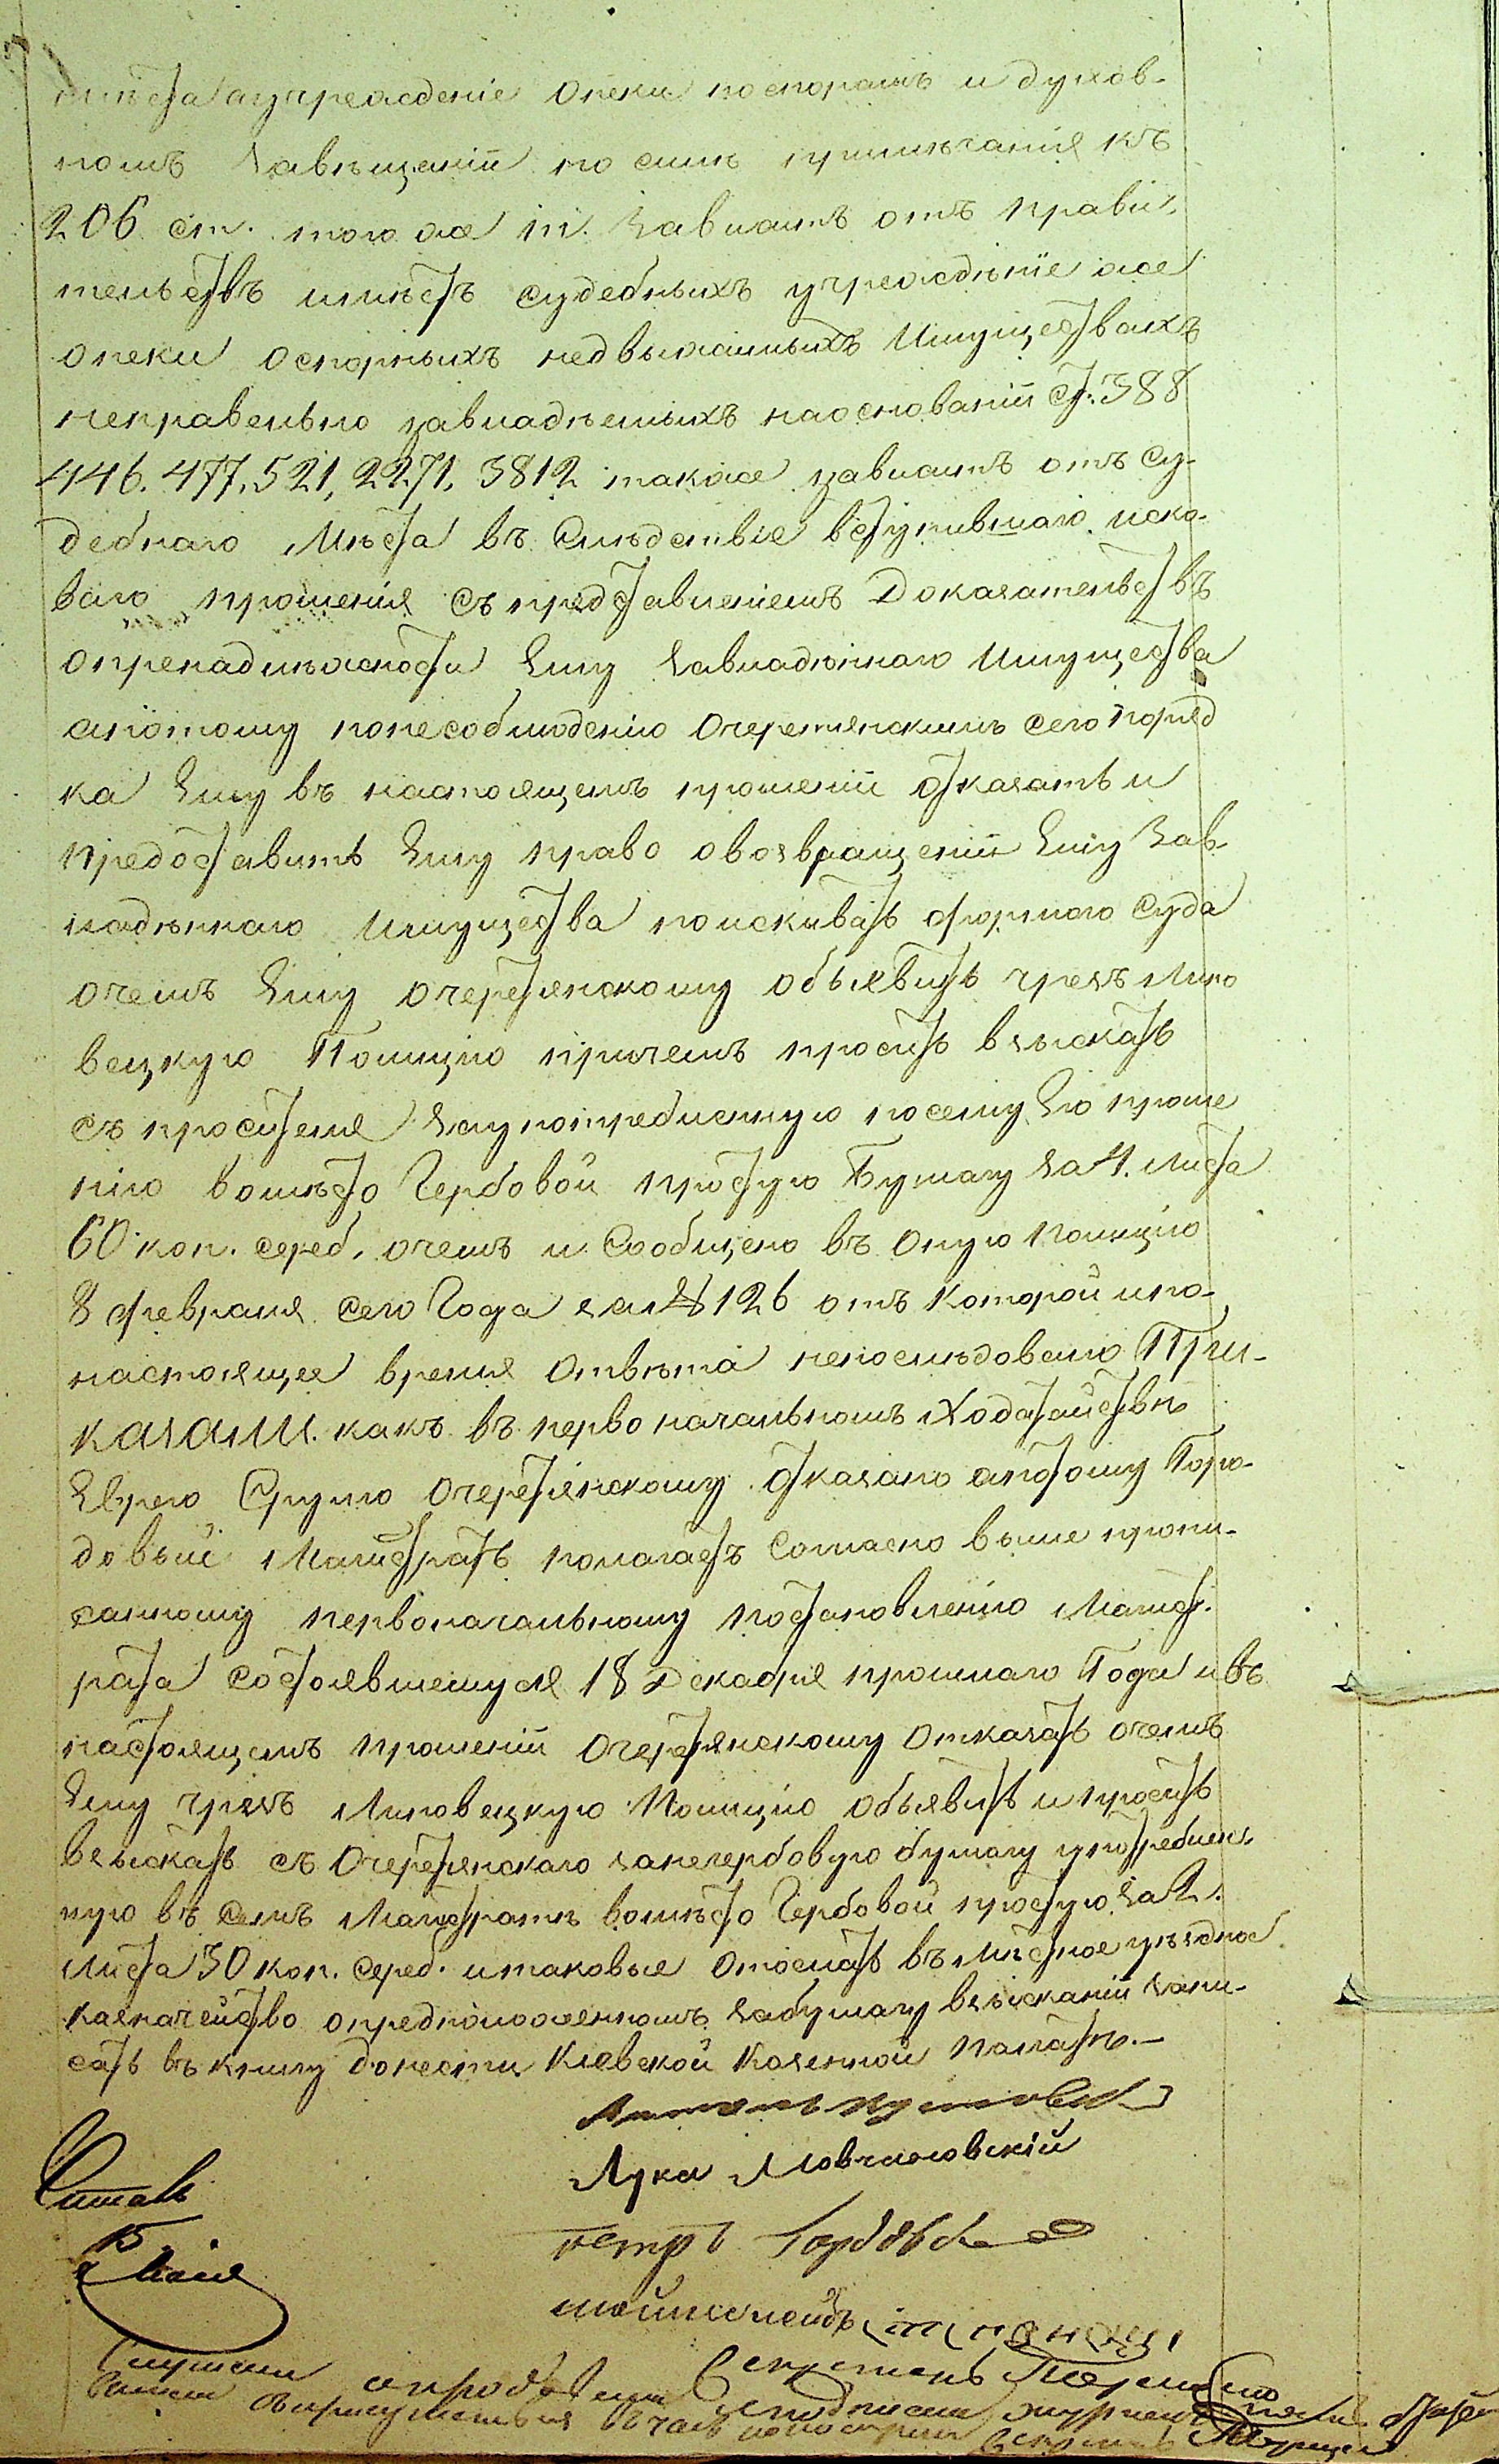 мѣста а учрежденіе опеки по спорамъ и духов-
номъ завѣщеній по силѣ примѣчанія къ
206 ст. того же т. зависитъ отъ прави-
тельствъ мѣстъ судебныхъ учрежденіе же
опеки оспорныхъ недвыжимыхъ Имуществахъ
неправельно завладѣемыхъ наоснованій ст. 388
446. 477. 521, 2271, 3812 также зависитъ отъ су-
дебнаго Мѣста въ слѣдствіе вступившаго иско-
ваго прошенія съ представленіемъ Доказательствъ
опренадлѣжности Ему завладѣннаго Имущества
апотому понесоблюденію Очеретянскимъ сего поряд
ка Ему въ настоящемъ прошеній отказать и
предоставить Ему право овозвращеній Ему Зав-
ладѣннаго Имущества поискивать формого Суда
очемъ Ему Очеретянскому объявить чрезъ Липо
вецкую Полицію причемъ просить взыскать
съ просителя заупотребленную посему Его проше
нію вомѣсто Гербовой простую Бумагу за 4. листа
60 коп. сереб. очемъ и Сообщено въ оную полицію
8 февраля сего Года за № 126 отъ которой ипо-
настоящее время отвѣта непослѣдовало При-
казали. какъ въ первоначальномъ Ходатайствѣ
Еврею Срулю Очеретянскому отказано апотому Горо-
довый Магистратъ полагаетъ Согласно выше пропи-
санному первоначальному постановленію Магист-
рата состоявшемуся 18 Декабря прошлаго Года и въ
настоящемъ прошеній Очеретянскому отказать очемъ
Ему чрезъ Липовецкую Полицію объявить и просить
взыскать съ Очеретянскаго занегербовую бумагу употреблен-
ную въ семъ Магистратѣ вомѣсто Гербовой простую за 2.
листа 30 коп. сереб. итаковые отослать въ мѣстное уѣздное
казначейство опредположенномъ забумагу взысканій запи-
сать въ книгу донести Кіевской Казенной Палатѣ.—
Лука Мовчановскій
Читалъ
петръ
Секретарь
Слушали